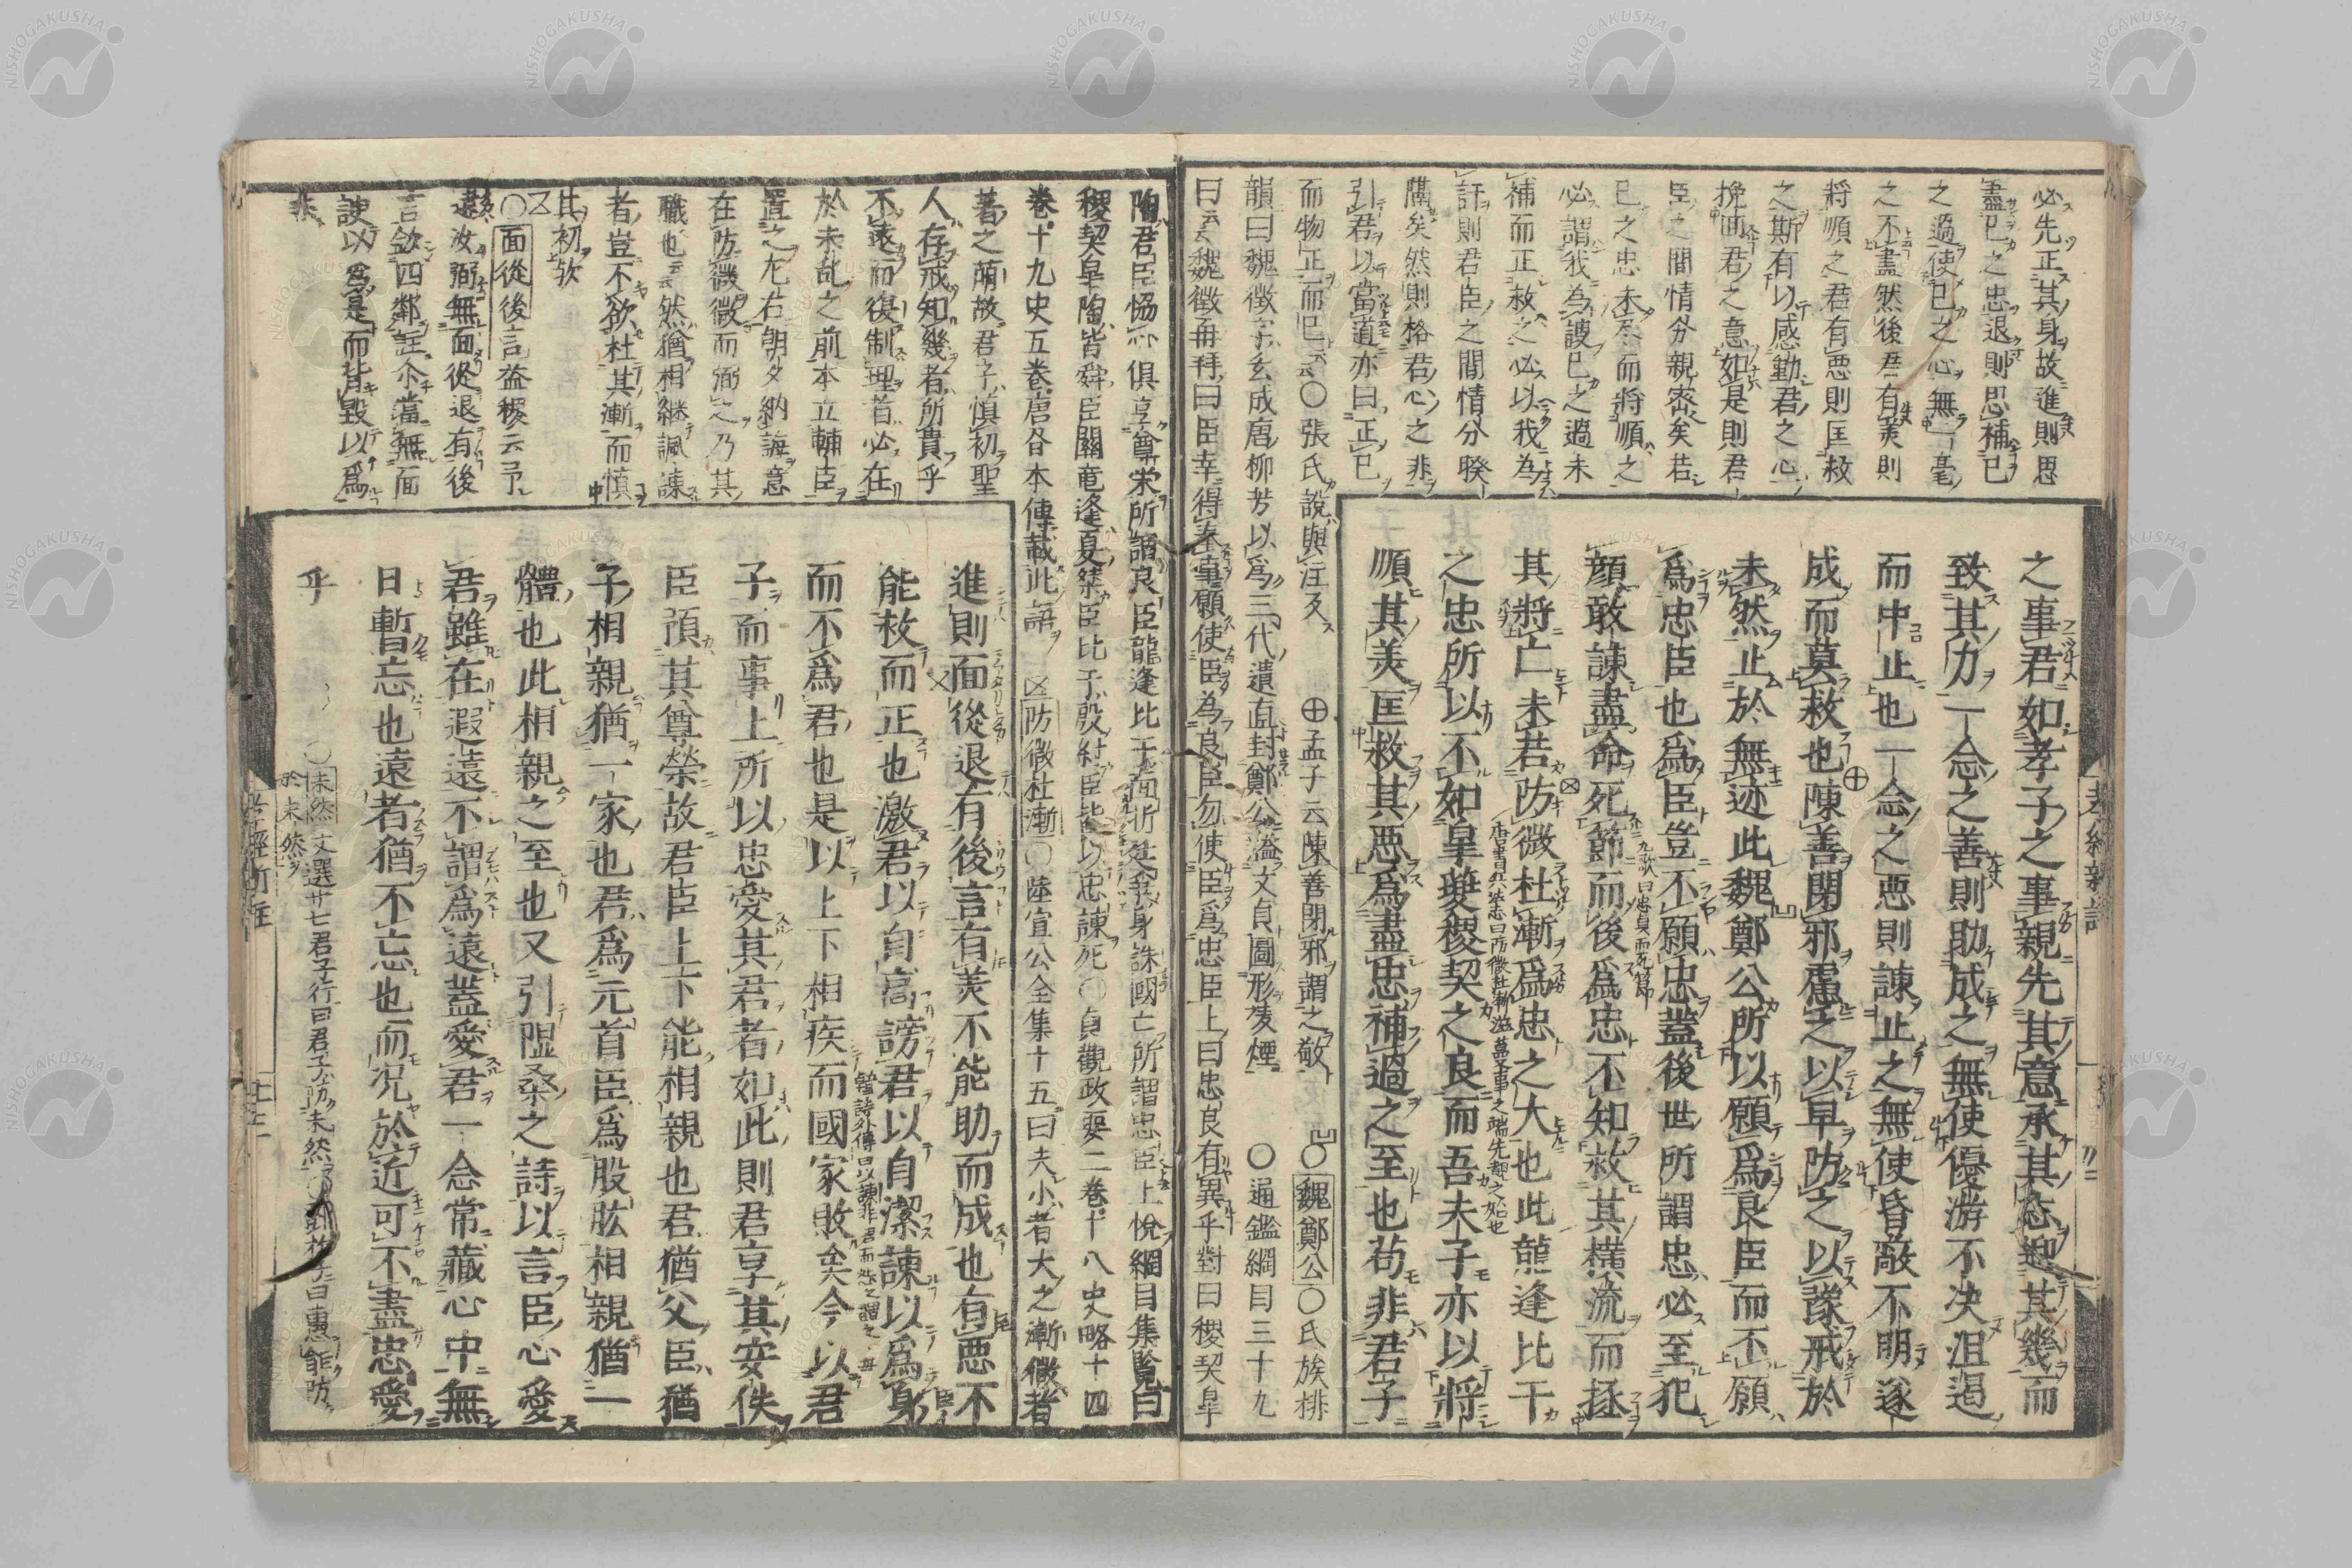 必先正其身故進則思
盡己之忠退則思補己
之過使己之心無一毫
之不盡然後君有美則
將順之君有惡則匡救
之斯有以感動君之心
挽回君之意如是則君
臣之間情分親密矣若
己之忠未尽而將順之
必謂我為諛己之過未
補而正救之必以我為
訐則君臣之間情分暌
隔矣然則格君心之非
引君以當道亦曰正己
而物正而已云云○張氏說與注反
⊕孟子云陳善閉邪謂之敬
○魏鄭公○氏族排
韻曰魏徵字玄成唐柳芳以為三代遺直封鄭公諡文貞圖形凌煙
○通鑑綱目三十九
曰云云魏徵再拜曰臣幸得奉事願使臣為良臣勿使臣為忠臣上曰忠良有異乎對曰稷契皐
之事君如孝子之事親先其意承其志迎其幾而
致其力一念之善則助成之無使優游不决沮遏
而中止也一念之惡則諫止之無使昏蔽不明遂
成而莫救也陳善閉邪慮之以早防之以豫戒於
未然止於無迹此魏鄭公所以願為良臣而不願
為忠臣也為臣豈不願忠蓋後世所謂忠必至犯
顔敢諫盡命死節而後為忠不知救其橫流而拯
九歌曰忠貞而死節
其將亡未若防微杜漸為忠之大也此龍逢比干
之忠所以不如皐夔稷契之良而吾夫子亦以將
順其美匡救其惡為盡忠補過之至也苟非君子
孝經新註
陶君臣恊心俱享尊栄所謂良臣龍逢比干面折廷爭身誅國亡所謂忠臣上悅綱目集覧曰
稷契皐陶皆舜臣關竜逢夏桀臣比干殷紂臣皆以忠諫死○貞觀政要二巻十八史略十四
巻十九史五巻唐各本傳載此語
防微杜漸○陸宣公全集十五曰夫小者大之漸微者
著之萠故君子慎初聖
人存戒知幾者所貴乎
不遠而復制理首必在
於未乱之前本立輔臣
置之左右朝夕納誨意
在防微微而弼之乃其
職也云云然猶相継諷諫
者豈不欲杜其漸而慎
其初欤
○面從後言益稷云予
違汝弼無面從退有後
言欽四鄰註尒當無面
諛以為是而背毀以為
非
進則面從退有後言有美不能助而成也有惡不
能救而正也激君以自高謗君以自潔諫以為身
而不為君也是以上下相疾而國家敗矣今以君
子而事上所以忠愛其君者如此則君享其安佚
臣預其尊榮故君臣上下能相親也君猶父臣猶
子相親猶一家也君為元首臣為股肱相親猶一
體也此相親之至也又引隰桑之詩以言臣心愛
君雖在遐遠不謂為遠蓋愛君一念常藏心中無
日暫忘也遠者猶不忘也而况於近可不盡忠愛
乎
○未然文選廿七君子行曰君子防未然
於未然
孝經新註